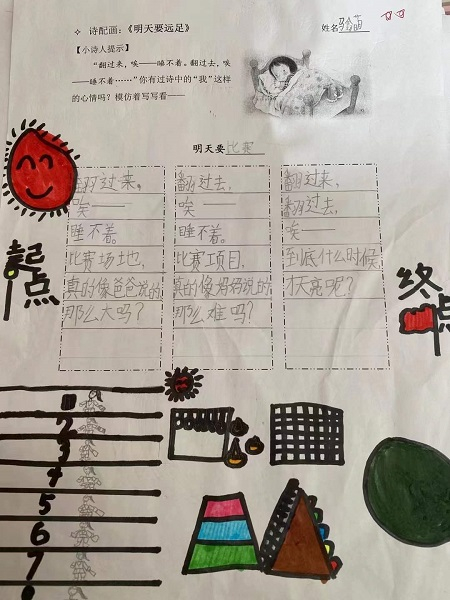 ✧ 诗配画：《明天要远足》
姓名
【小诗人提示】
“翻过来，唉——睡不着。翻过去，唉
——睡不着……”你有过诗中的“我”这样
的心情吗？模仿着写写看——
明天要比赛
翻过来，
唉——
睡不着。
比赛场地，
真的像爸爸说的
那么大吗？
翻过去，
唉——
睡不着。
比赛项目，
真的像妈妈说的
那么难吗？
翻过来，
翻过去，
唉——
到底什么时候，
才天亮呢？
起点
终点
1
2
3
4
5
6
7
8